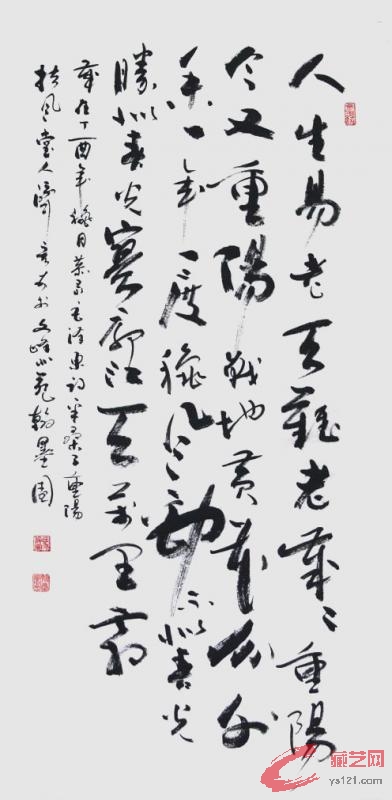 人生易老天難老歲〻重陽
今又重陽戰地黄花分外
香一年一度穐风勁不似春光
勝似春光寥廓江天萬里霜
歲在丁酉年穐月录毛泽東词采桑子重陽
扶风堂人 文峰小苑翰墨園
藏艺网
ys121.com